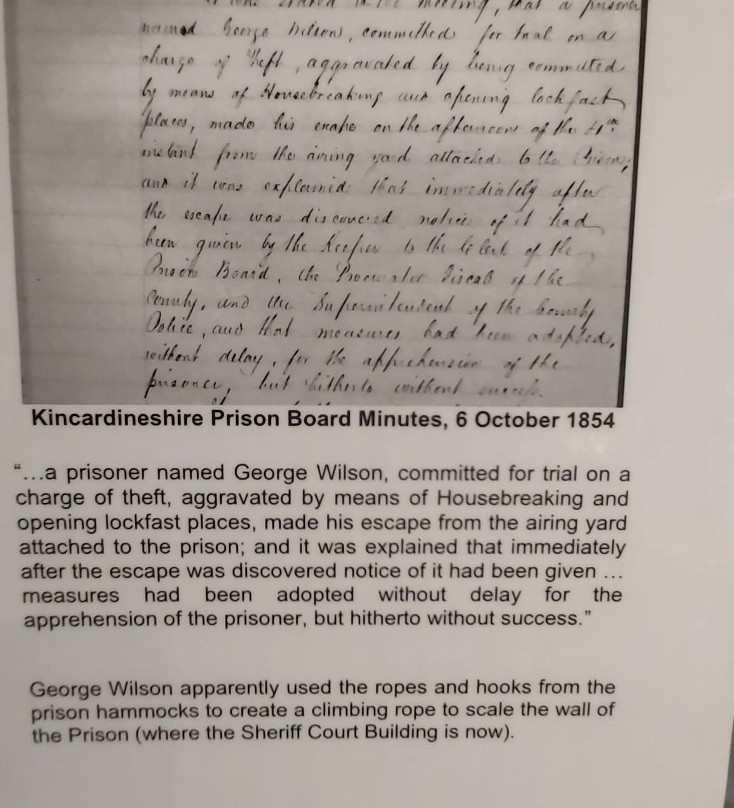 it was stated to the meeting, that a prisoner
named George Wilson, committed for trial on a
charge of theft, aggravated by being committed
by means of Housebreaking and opening lockfast
places, made his escape on the afternoon of the
instant from the airing yard attached to the Prison;
and it was explained that immediately after
the escape was discovered notice of it had
been given by the Keeper to the Clerk of the
Prison Board, the Procurator Fiscal of the
County, and the Superintendent of the County
Police, and that measures had been adopted,
without delay, for the apprehension of the
prisoner, but hitherto without success.
Kincardineshire Prison Board Minutes, 6 October 1854
“...a prisoner named George Wilson, committed for trial on a
charge of theft, aggravated by means of Housebreaking and
opening lockfast places, made his escape from the airing yard
attached to the prison; and it was explained that immediately
after the escape was discovered notice of it had been given ...
measures had been adopted without delay for the
apprehension of the prisoner, but hitherto without success.”
George Wilson apparently used the ropes and hooks from the
prison hammocks to create a climbing rope to scale the wall of
the Prison (where the Sheriff Court Building is now).